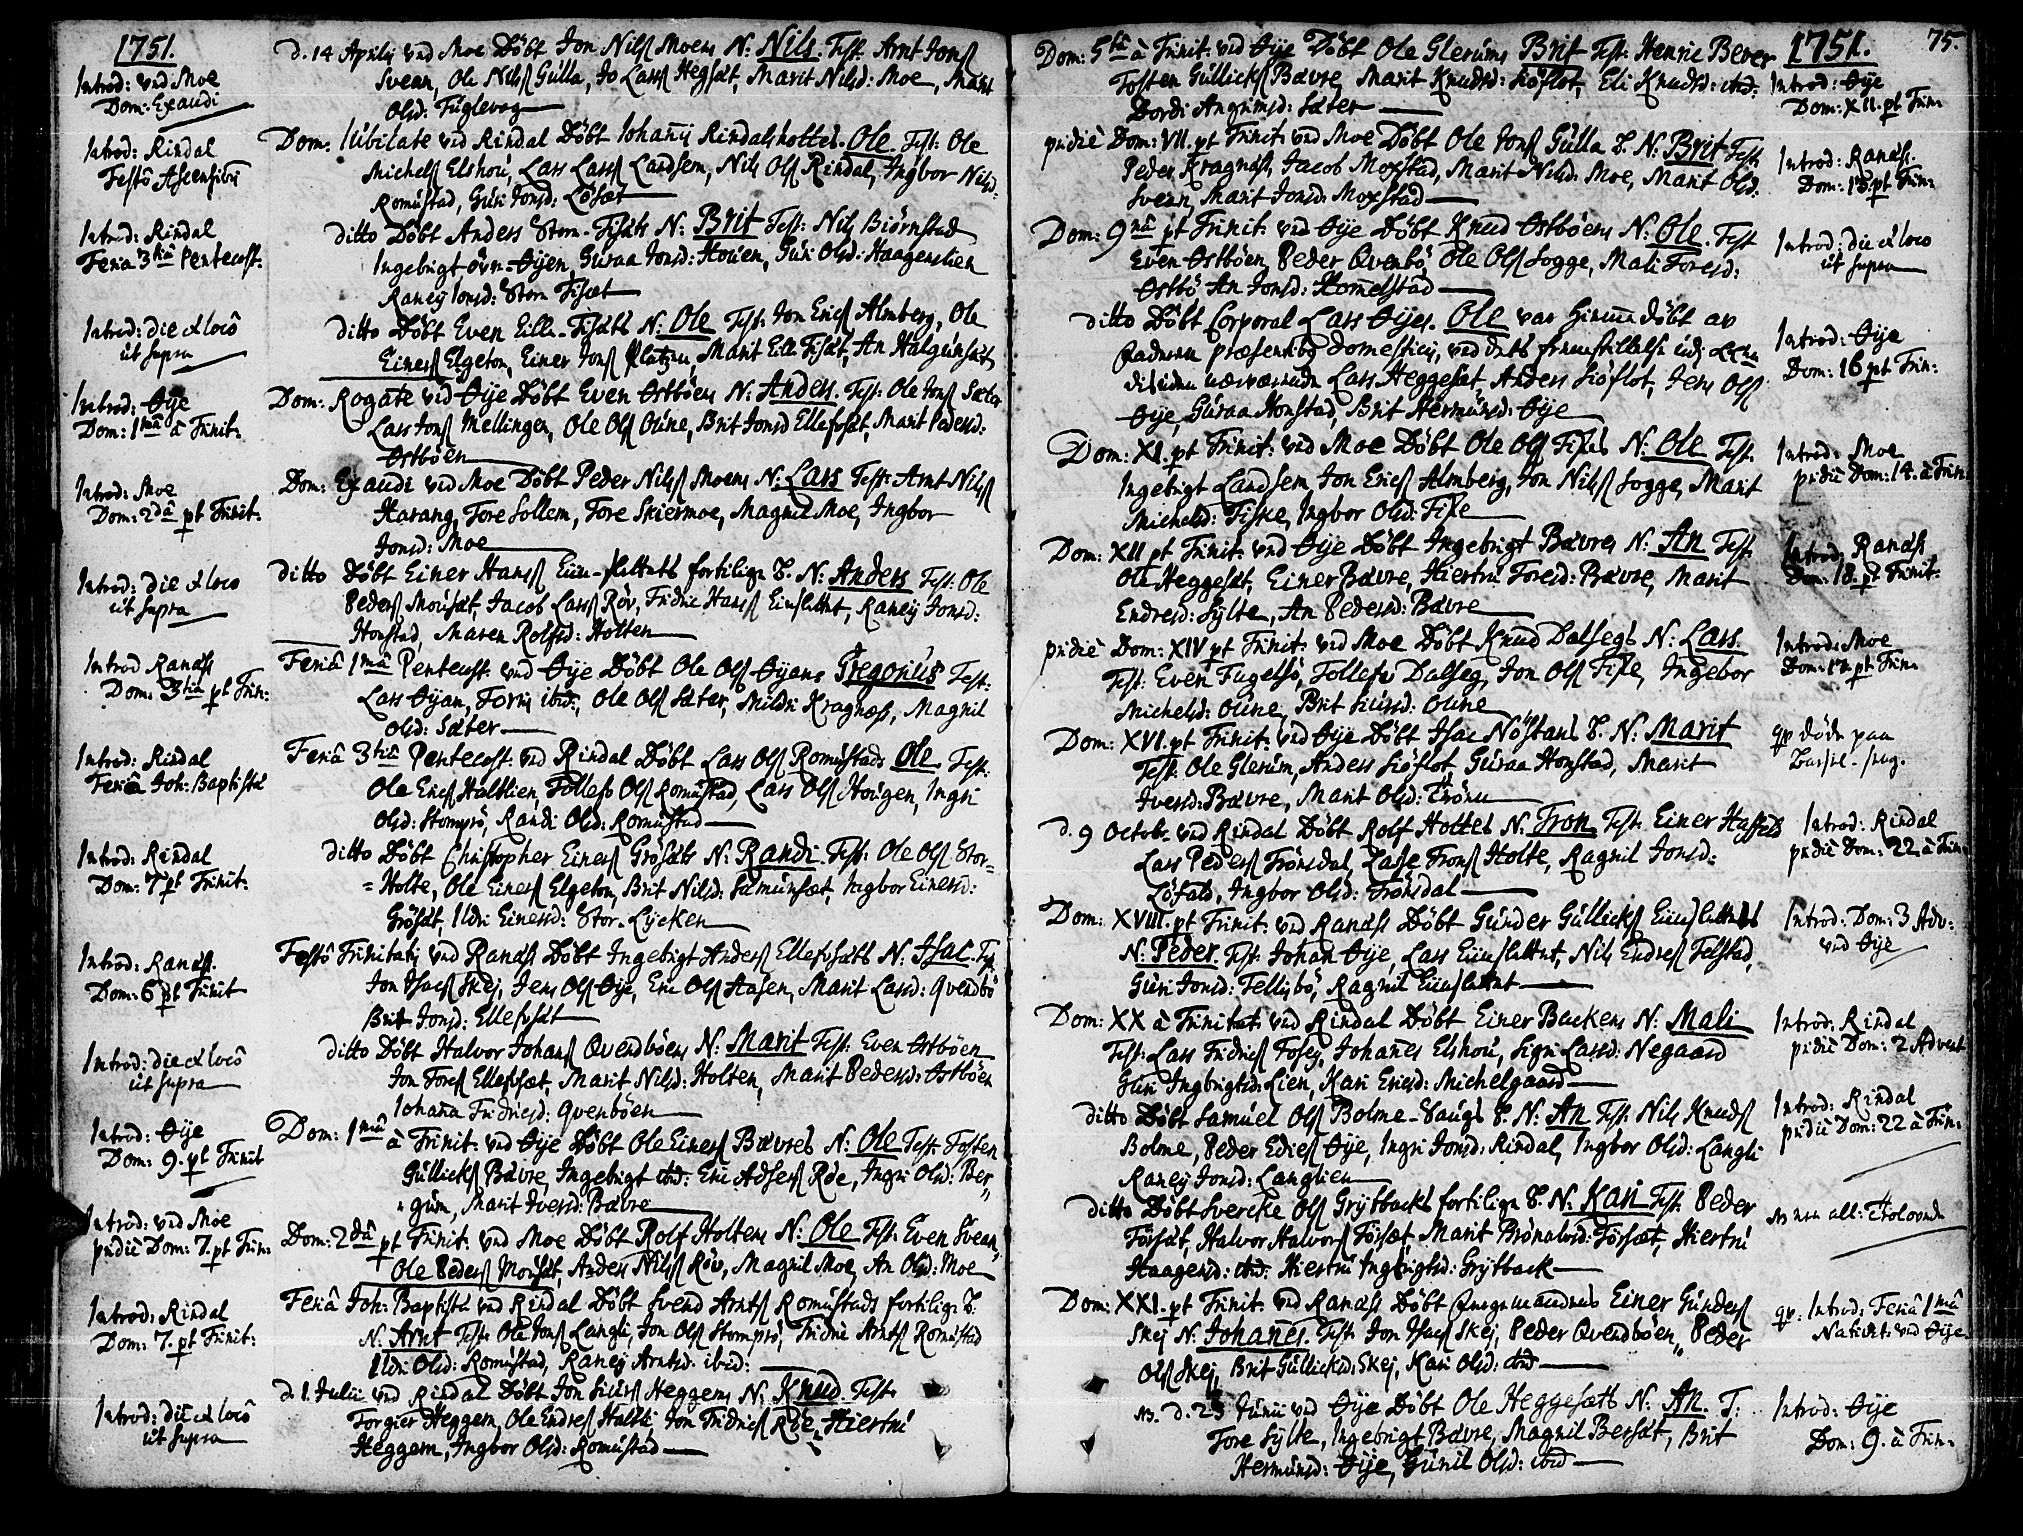 1751.
Introd: ved Moe
Dom: Exaudi
Introd: Rindal
Festô Ascensionis
Introd: Rindal
Feria 3tiâ Pentecost:
Introd: die & locô
ut supra
Introd: Øÿe
Dom: 1mâ â Trinit:
Introd: Moe
Dom: 2dâ pt Trinit:
Introd: die & loco
ut supra
Introd Ranæss
Dom: 3tia pt Trin:
Introd: Rindal
Feriâ Joh: Baptistæ
Introd: Rindal
Dom: 7 pt Trinit:
Introd: Ranæss.
Dom: 6 pt Trinit
Introd: die & locô
ut supra
Introd: Øÿe
Dom: 9. pt Trinit
Introd: ved Moe
pridie Dom: 7. pt Trin:
Introd: Rindal
Dom: 7. pt Trinit:
Introd: die & locô
ut supra
d. 14 Aprilis ved Moe Døbt Jon Nilss Moens N: Nils. Test: Arnt Jonss
Svean, Ole Nilss Gulla, Jo Larss Hegsæt, Marit Nilsd: Moe, Marit
Olsd: Fuglevog
Dom: Jubilate ved Rindal Døbt Johannis Rindalsholtes Ole. Test: Ole
Michelss Elshou, Lars Larss Landsem, Nils Olss Rindal, Ingbor Nilsd:
Romustad, Guri Jonsd: Løset
ditto Døbt Anders Stor-Fisæts N: Brit Test: Nils Biørnstad
Ingebrigt øvr-Øÿen, Guraa Jonsd: Houen, Guri Olsd: Haagenslien
Raneÿ Jonsd: Stor Fisæt
ditto Døbt Even Lille-Fisæts N: Ole Test: Jon Ericss Almberg, Ole
Einerss Elgeton, Einer Jonss Platzen, Marit Lill Fisæt, An Halgunsæt
Dom: Rogate ved Øÿe Døbt Even Østbøens N: Anders. Test: Ole Jonss Sæter
Lars Jonss Mellingen, Ole Olss Oune, Brit Jonsd Ellefsæt, Marit Pedersd:
Østbøen
Dom: Exaudi ved Moe Døbt Peder Nilss Moens N: Lars Test: Arnt Nilss
Harang, Tore Sollem, Tore Skiermoe, Magnil Moe, Ingbor
Jonsd: Moe
ditto Døbt Einer Hanss slettets fortilige b. N: Anders Test: Ole
Pederss Mousæt, Jacob Larss Røv, Fridric Hanss Raneÿ Jonsd:
Honstad, Maren Rolfsd: Holten
Feriâ 1mâ Pentecost. ved Øÿe Døbt Ole Olss Øÿens Gregorius Test:
Lars Øÿen, Tore ibid:, Ole Olss Sæter, Mildri Kragnæss, Magnil
Olsd: Sæter
Feriâ 3tiâ Pentecost: ved Rindal Døbt Lars Olss Romustads Ole. Test:
Ole Ericss Haltlien, Tollefs Olss Romustad, Lars Olss Hougen, Ingri
Olsd: Stomprø, Randi Olsd: Romustad
ditto Døbt Christopher Einerss Grøsæts N: Randi. Test: Ole Olss Stor=
=Holte, Ole Einerss Elgeton, Brit Nilsd: Samunsæt, Ingbor Einersd:
Grøsæt, Ildri Einersd: Stor-Lÿcken
Festô Trinitatis ved Ranæss Døbt Ingebrigt Anderss Ellefsæts N: Isac. Test:
Jon Isacss Skej, Jens Olss Øÿe, Eric Olss Aasen, Marit Larsd: Qvendbø
Brit Jonsd: Ellefsæt
ditto Døbt Halvor Johanss Qvendbøens N: Marit Test: Even Østbøen
Jon Toress Ellefsæt, Marit Nilsd: Holten, Marit Pedersd: Østbøen
Johanna Fridricsd: Qvenbøen
Dom: 1mâ â Trinit: ved Øÿe Døbt Ole Einerss Bævres N: Ole Test: Tosten
Gullickss Bævre, Ingebrigt ibid: Eric Adserss Røe, Ingri Olsd: Ber,,
,,gum, Marit Iversd: Bævre
Dom: 2dâ pt Trinit: ved Moe Døbt Rolf Holtens N: Ole Test: Even Svean,
Ole Pederss Mousæt, Anders Nilss Røv, Magnil Moe, An Olsd: Moe
Feriâ Joh: Baptistæ ved Rindal Døbt Svend Arntss Romustads fortilige b.
N: Arnt Test: Ole Jonss Langli, Jon Olss Stomprø, Fridric Arntss Romustad
Ildri Olsd: Romustad, Raneÿ Arntsd: ibid:
d. 1. Julii ved Rindal Døbt Jon Siurss Heggems N: Knud. Test:
Torgier Heggem, Ole Endress Haltli Jon Fridricss Røe, Hiertru
Heggem, Ingbor Olsd: Romustad
Dom: 5tâ â Trinit: ved Øÿe Døbt Ole Glerums Brit Test: Henric Bever
Tosten Gullickss Bævre, Marit Knudsd: Siøflot, Eli Knudsd: ibid:
Dordi Angrimsd: Sæter
pridie Dom: VII. pt Trinit: ved Moe Døbt Ole Jonss Gulla b. N: Brit Test:
Peder Kragnæss, Jacob Moxstad, Marit Nilsd: Moe, Marit Olsd:
Svean, Marit Jonsd: Moxstad
Dom: 9nâ pt Trinit: ved Øÿe Døbt Knud Østbøens N: Ole. Test
Even Østbøen Peder Qvenbø Ole Olss Sogge, Mali Toresd:
Østbø An Jonsd: Hommelstad
ditto Døbt Corporal Lars Øÿes. Ole var hiemme døbt av
Faderen præsentibus domesticis, ved dets fremstillelse
Lars Heggesæt, Anders Siøflot, Jens Olss
Øÿe, Guraa Honstad, Brit Hermunsd: Øÿe
Dom: XI. pt Trinit: ved Moe Døbt Ole Olss Fixes N: Ole Test:
Ingebrigt Landsem Jon Ericss Almberg, Jon Nilss Sogge, Marit
Michelsd: Fiske, Ingbor Olsd: Fixe
Dom: XII pt Trinit: ved Øÿe Døbt Ingebrigt Bævres N: An Test:
Ole Heggesæt, Einer Bævre, Hiertru Toresd: Bævre, Marit
Endresd: Sÿlte, An Pedersd: Bævre
pridie Dom: XIV pt Trinit: ved Moe Døbt Knud Dalsegs N: Lars.
Test: Even Fugelsø, Tollefs Dalseg, Jon Olss Fixe, Ingebor
Michelsd: Oune, Brit Siursd: Oune
Dom: XVI. pt Trinit: ved Øÿe Døbt Isac Nøstans b. N: Marit
Test: Ole Glerum, Anders Siøflot Guraa Honstad, Marit
Iversd: Bævre, Marit Olsd: Trønen
d. 9 Octobr: ved Rindal Døbt Rolf Holtes N: Tron Test: Einer Hassels
Lars Pederss Trønsdal, Lasse Tronss Holte, Ragnil Jonsd:
Løfald, Ingbor Olsd: Trønsdal
Dom: XVIII. pt Trinit: ved Ranæss Døbt Gunder Gullickss
N: Peder. Test: Johan Øÿe, Lars Nils Endress Telstad,
Guri Jonsd: Tellisbø, Ragnil
Dom: XX â Trinitat: ved Rindal Døbt Einer Backens N: Mali
Test: Lars Fridricss Foseÿ, Johannes Elshou, Sigri Larsd: Negaard
Guri Ingbrigtsd: Lien, Kari Ericsd: Michelgaard
ditto Døbt Samuel Olss Bolme-Saugs b. N: An Test: Nils Knudss
Bolme, Peder Ediess Øÿe, Ingri Jonsd: Rindal, Ingbor Olsd: Langli
Raneÿ Jonsd: Langlien
ditto Døbt Svercke Olss Grÿtbacks fortilige b. N: Kari Test: Peder
Førsæt, Halvor Halvorss Førsæt Marit Brønalvsd: Førsæt, Hiertru
Haagensd: ibid: Hiertru Ingbrigtsd: Grÿtback
Dom: XXI. pt Trinit: ved Ranæss Døbt Einer Gunderss
Skej N: Johannes. Test: Jon Isacss Skej, Peder Qvendbøen, Peder
Olss Skej, Brit Gullicksd: Skej, Kari Olsd: ibid
NB. d. 23 Junii ved Øÿe Døbt Ole Heggesætts N: An. T:
Tore Sÿlte, Ingebrigt Bævre, Magnil Bersæt, Brit
Hermunsd: Øÿe, Gunil Olsd: ibid
1751.
75.
Introd: Øÿe
Dom: XII. pt Trin:
Introd: Ranæss.
Dom: 13. pt Trin:
Introd: die & loco
ut supra
Introd: Øÿe
Dom: 16 pt Trin:
Introd: Moe
pridie Dom: 14. â Trin:
Introd: Ranæss
Dom: 18. pt Trinit:
Introd: Moe
Dom: 17. pt Trin:
qv døde paa
Barsel-seng.
Introd: Rindal
pridie Dom: 22 â Trin:
Introd: Dom: 3 Adv:
ved Øÿe
Introd: Rindal
pridie Dom: 2 Advent
Introd: Rindal
pridie Dom: 22 â Trin:
NB all: Troloved
qv: Introd: Feriâ 1mâ
Nativit: ved Øÿe.
Introd: Øÿe
Dom: 9. â Trin: